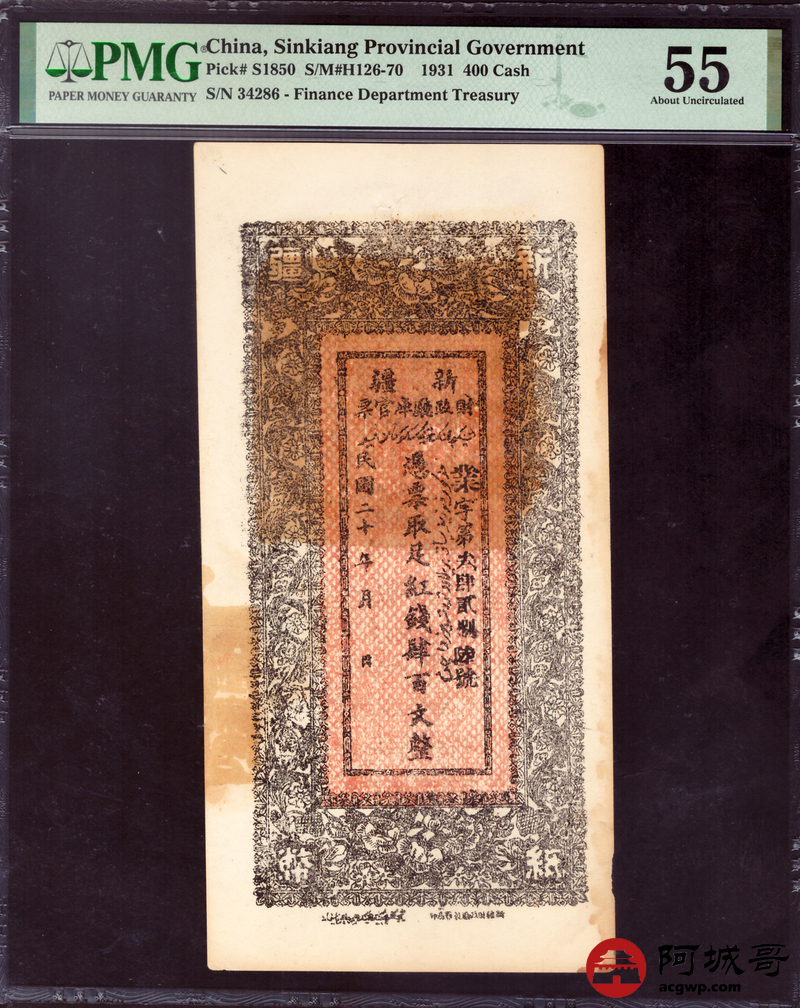 PMG® China, Sinkiang Provincial Government
Pick# S1850 S/M#H126-70 1931 400 Cash
PAPER MONEY GUARANTY S/N 34286 - Finance Department Treasury
55
About Uncirculated
新疆
新疆
財政廳庫官票
業字第 肆貳捌陸號
憑票取足紅錢肆百文整
民國二十年 月 日
紙幣
阿城哥
acgwp.com